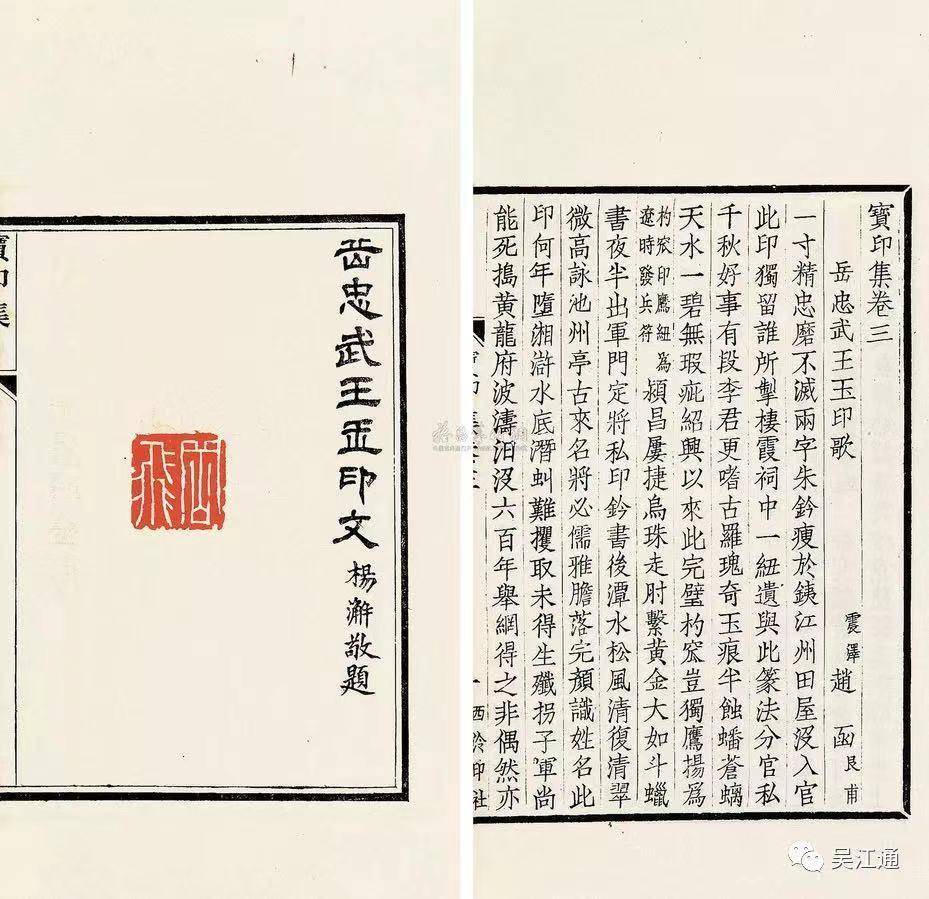 寶印集卷三
岳忠武王玉印歌
震澤 趙 函 艮甫
一寸精忠磨不滅兩字朱鈐瘦於銕江州田屋沒入官
此印獨留誰所掣棲霞祠中一紐遺與此篆法分官私
千秋好事有段李君更嗜古羅瑰奇玉痕半蝕蟠蒼螭
天水一碧無瑕疵紹興以來此完璧杓窊豈獨鷹揚爲
杓窊印鷹紐爲
遼時發兵符
潁昌屢捷烏珠走肘繫黃金大如斗蠟
書夜半出軍門定將私印鈐書後潭水松風清復清翠
微高詠池州亭古來名將必儒雅膽落完顏識姓名此
印何年墮湘滸水底潛虯難攫取未得生殲拐子軍尚
能死搗黃龍府波濤汨沒六百年舉網得之非偶然亦
一
西泠印社
岳忠武王玉印文
楊澥敬題
岳飛
寶印集
吴江通